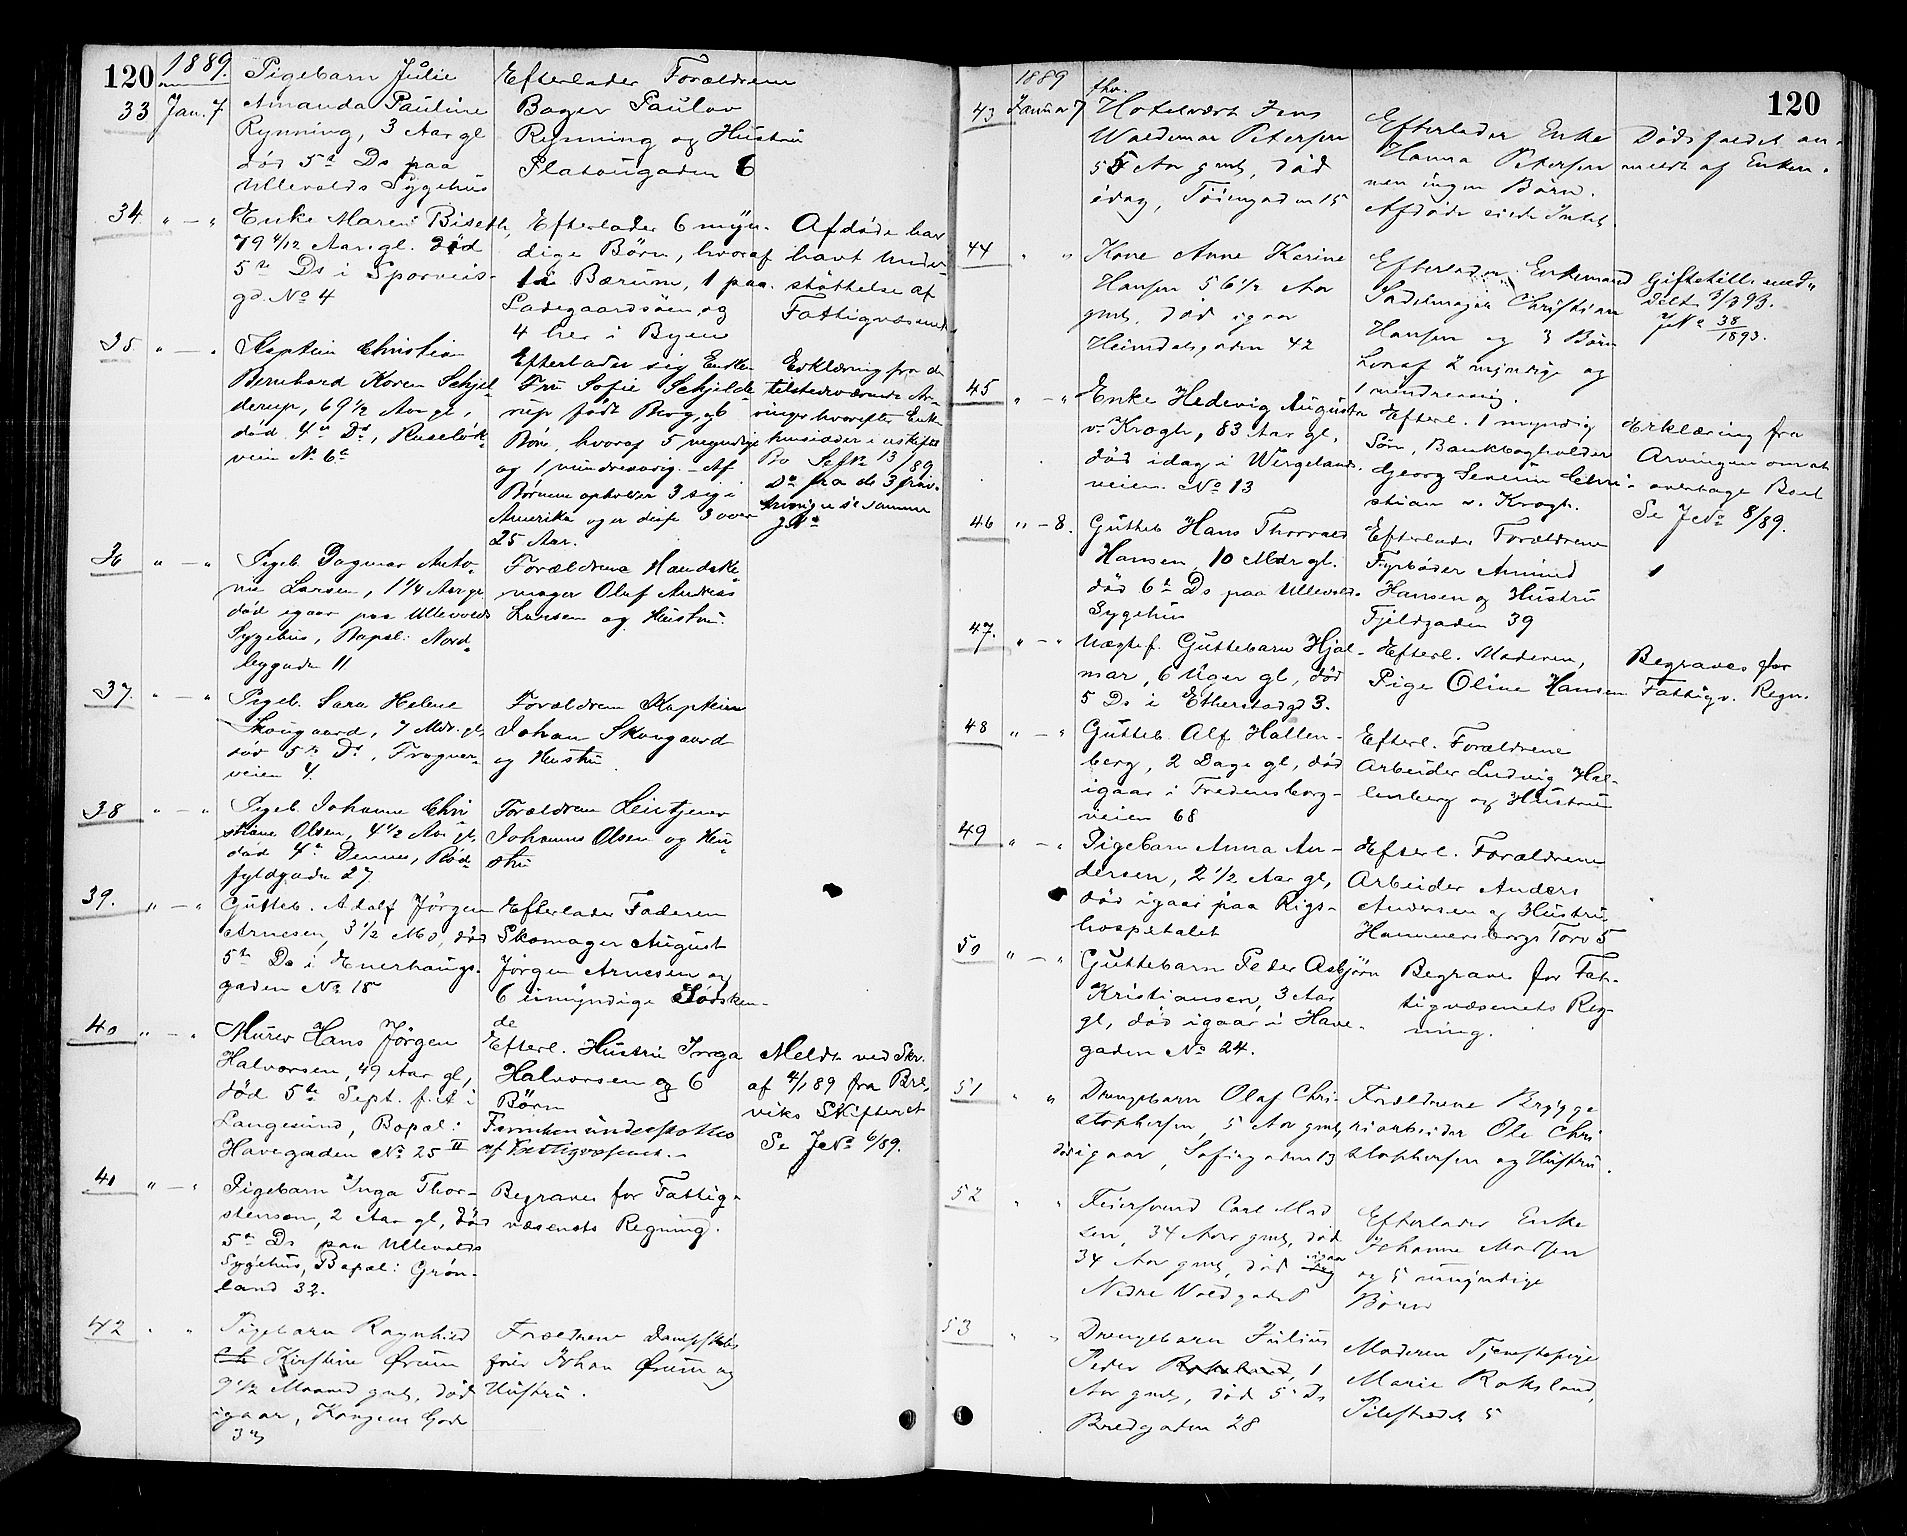 120
1889.
33 Jan. 7
Pigebarn Julie
Amanda Pauline
Rynning, 3 Aar gl
død 5te Ds paa
Ullevolds Sygehus
Efterlader Forældrene
Bager Paulov
Rynning og Hustru
Platougaden 6
34 " — "
Enke Maren Biseth,
79 4/12 Aar gl. død
5te Ds i Sporveis-
gd. No 4
Efterlader 6 myn-
dige Børn, hvoraf
1 i Bærum, 1 paa
Ladegaardsøen og
4 her i Byen
Afdøde har
havt Under-
støttelse af
Fattigvæsenet
35 " — "
Kaptein Christian
Bernhard Koren Schjel
derup, 69 1/2 Aar gl.,
død 4de Ds, Ruseløk-
veien No 6a
Efterlader sig Enken
Fru Sofie Schjelde
rup født Berg og 6
Børn, hvoraf 5 myndige
og 1 mindreaarig. - Af
Børnene opholder 3 sig i
Amerika og er disse 3 over
25 Aar.
Erklæring fra de
tilstedeværende Ar-
vinger hvorefter Enken
hensidder i uskiftet
Bo Se JNo 13/89.
Do fra de 3
se samme
JNo
36 " — "
Pigeb. Dagmar Anto-
nie Larsen, 1 1/4 Aar gl
død igaar paa Ullevolds
Sygehus, Bopæl: Nord-
bygade 11
Forældrene Handske
mager Oluf Andreas
Larsen og Hustru.
37. " — "
Pigeb. Sara Helene
Skougaard, 7 Mdr. gl.
død 5te Ds, Frogner-
veien 4.
Forældrene Kaptein
Johan Skougaard
og Hustru.
38 " — "
Pigeb. Johanne Chri
stiane Olsen, 4 1/2 Aar gl.
død 4de Dennes, Rød-
fyldgaden 27
Forældrene Leietjener
Johannes Olsen og Hu-
stru
39. " — "
Gutteb. Adolf Jørgen
Arnesen, 3 1/2 Md, død
5te Ds i Enerhaugs-
gaden No 18
Efterlader Faderen
Skomager August
Jørgen Arnesen og
6 umyndige Sødsken-
de
40 " — "
Murer Hans Jørgen
Halvorsen, 49 Aar gl,
død 5te Sept. f. A i
Langesund, Bopæl:
Havegaden No 25 II
Efterl. Hustru Inga
Halvorsen og 6
Børn
Familien understøttes
af Fattigvæsenet.-
Meldt ved Skr.
af 4/1 89 fra Bre-
viks Skifteret
Se JNo 6/89.
41 " — "
Pigebarn Inga Thor-
stensen, 2 Aar gl, død
5te Ds paa Ullevolds
Sygehus, Bopæl: Grøn-
land 32.
Begraves for Fattig-
væsenets Regning.
42 " "
Pigebarn Ragnhild
Kirstine Ørum
9 1/2 Maaned gml, død
igaar, Kongens Gade
Forældrene Dampskibs
fører Johan Ørum og
Hustru.
120
1889
43 Januar 7
fhv.
Hotelvært Jens
Waldemar Petersen
55 Aar gml, død
idag, Tøiengaden 15
Efterlader Enke
Hanna Petersen
men ingen Børn.
Afdøde eiede Intet.
Dødsfaldet an-
meldt af Enken.
44 " "
Kone Anne Karine
Hansen 56 1/2 Aar
gml. død igaar
Heimdalsgaden 42
Efterlader Enkemand
Sadelmager Christian
Hansen og 3 Børn
hvoraf 2 myndige og
1 mindreaarig.
Giftetill. med-
delt 3/3 93.
JNo 38/1893.
45 " — "
Enke Hedevig Augusta
v. Krogh, 83 Aar gl.
død idag i Wergelands-
veien No 13
Efterl. 1 myndig
Søn, Bankbogholder
Georg Severin Chri-
stian v. Krogh.
Erklæring fra
Arvingen om at
overtage Boet
Se JNo 8/89.
46 " — 8.
Gutteb Hans Thorvald
Hansen, 10 Mdr gl.
død 6te Ds paa Ullevolds
Sygehus
Efterlader Forældrene
Fyrbøder Amund
Hansen og Hustru
Fjeldgaden 39
47. " — "
Uægtef. Guttebarn Hjal-
mar, 6 Uger gl, død
5 Ds i Etterstadgd 3.
Efterl. Moderen,
Pige Oline Hansen
Begraves for
Fattigv. Regn.
48 " — "
Gutteb. Alf Hallen-
berg, 2 Dage gl, død
igaar i Fredensborg-
veien 68
Efterl. Forældrene
Arbeider Ludvig Hal-
lenberg og Hustru
49 " — "
Pigebarn Anna An-
dersen, 2 1/2 Aar gl,
død igaar paa Rigs-
hospitalet
Efterl. Forældrene
Arbeider Anders
Andersen og Hustru,
Hammersborgs Torv 5
50 " — "
Guttebarn Peder Asbjørn
Kristiansen, 3 Aar
gl, død igaar i Have-
gaden No 24.
Begraves for Fat-
tigvæsenets Reg-
ning.
51 " "
Drengebarn Olaf Chri-
stophersen, 5 Aar gml,
død igaar, Sofiegaden 13
Forældrene Brygge
riarbeider Ole Chri
stophersen og Hustru.
52 " "
Feiersvend Carl Mad
sen, 34 Aar gml, død
34 Aar gml, død idag igaar
Nedre Voldgade 8
Efterlader Enke
Johanne Madsen
og 5 umyndige
Børn
53 " "
Drengebarn Julius
Peder Roksland, 1
Aar gml, død 5te Ds
Bredgaden 28
Moderen Tjenestepige
Marie Roksland,
Pilestrædet 5